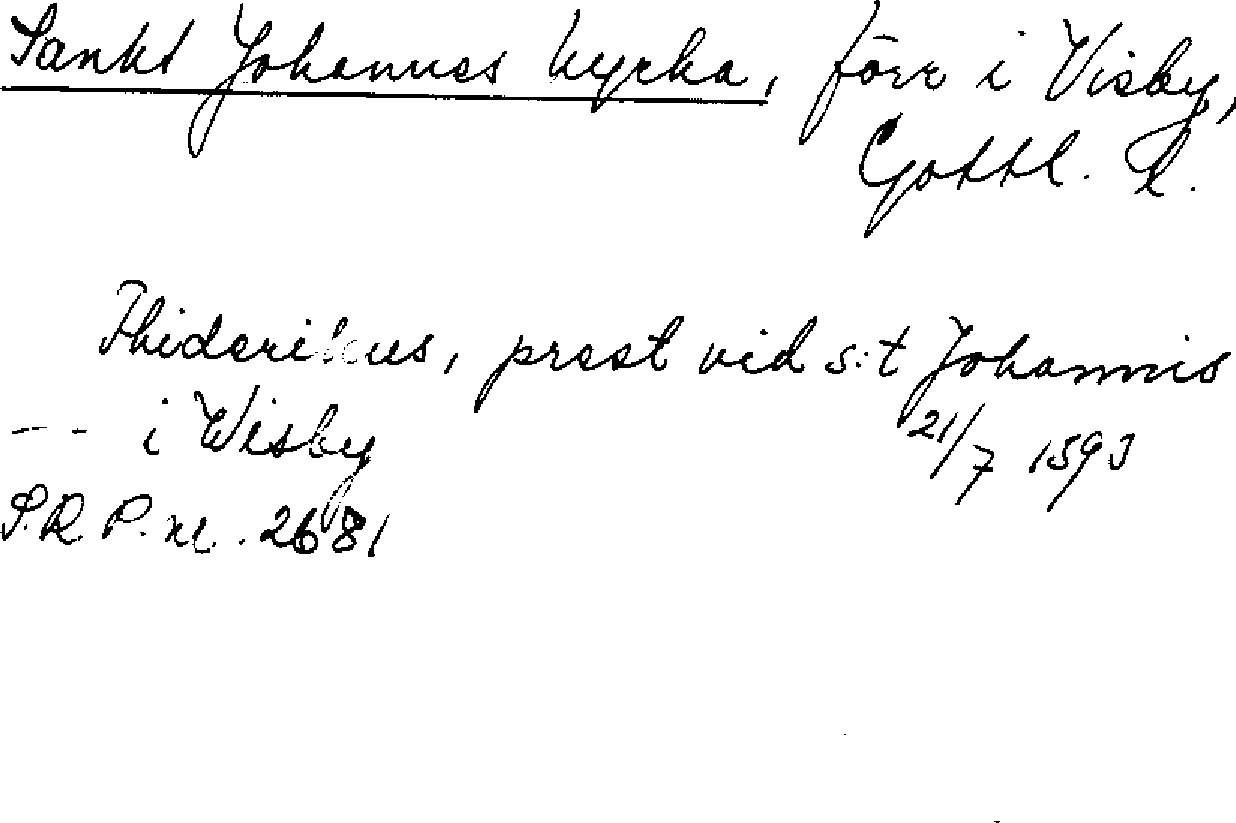 Sankt Johannes kyrka, förr i Visby,
Gottl. l.
Thiderikus, prest vid s:t Johannis
-- i Wisby 21/7 1393
S.R.P. nr. 2681